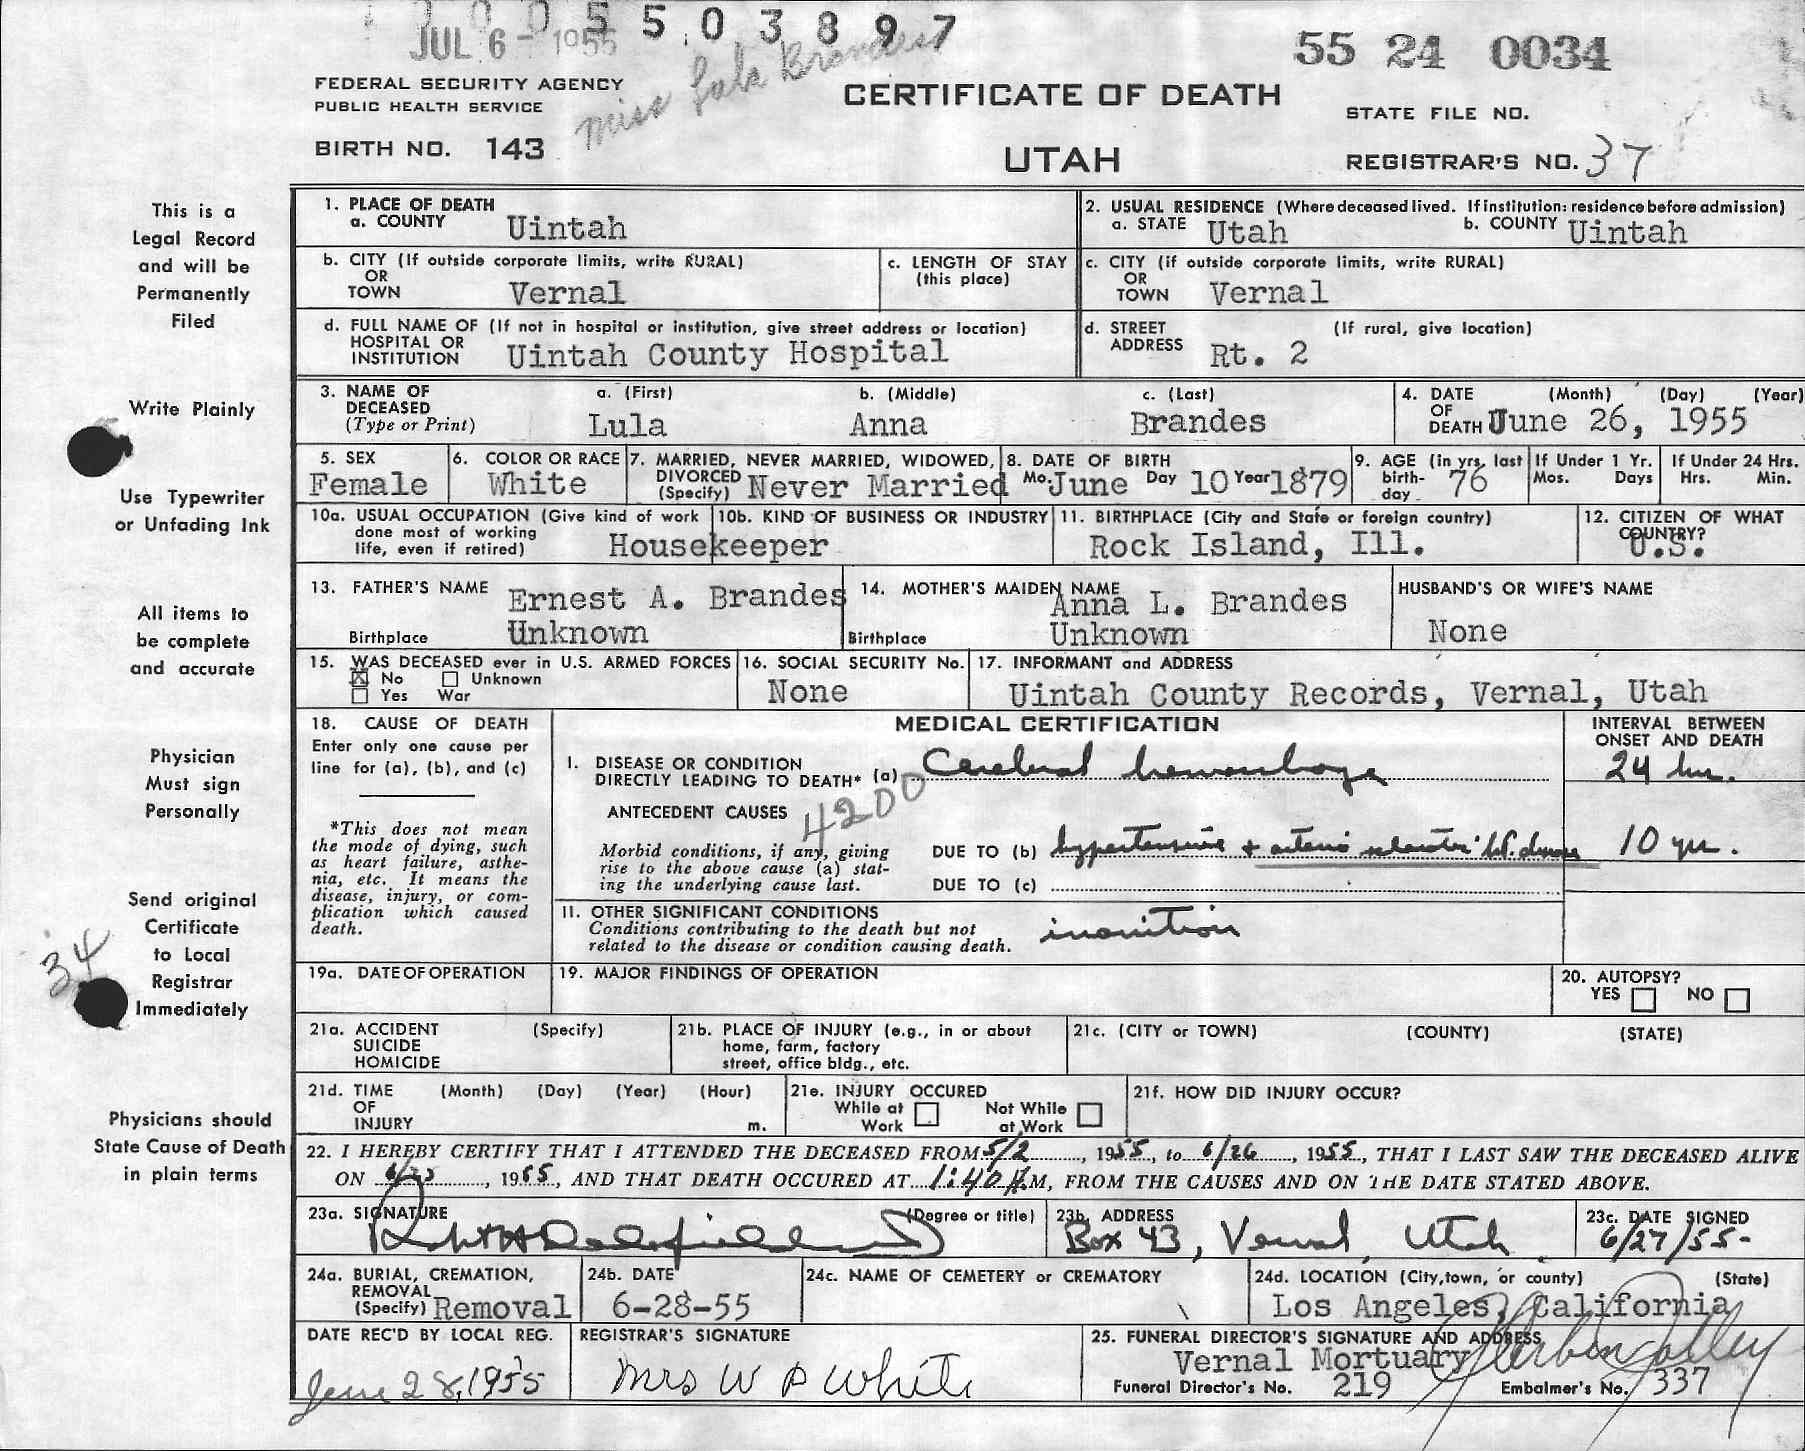 5503897
JUL 6 - 1955
55 24 0034
Miss Lula Brandes
FEDERAL SECURITY AGENCY
PUBLIC HEALTH SERVICE
CERTIFICATE OF DEATH
STATE FILE NO.
BIRTH NO. 143
UTAH
REGISTRAR'S NO. 37
This is a
Legal Record
and will be
Permanently
Filed
Write Plainly
Use Typewriter
or Unfading Ink
All items to
be complete
and accurate
Physician
Must sign
Personally
Send original
Certificate
to Local
Registrar
Immediately
34
Physicians should
State Cause of Death
in plain terms
1. PLACE OF DEATH
a. COUNTY Uintah
2. USUAL RESIDENCE (Where deceased lived. If institution: residence before admission)
a. STATE Utah b. COUNTY Uintah
b. CITY (If outside corporate limits, write RURAL)
OR
TOWN Vernal
c. LENGTH OF STAY
(this place)
c. CITY (if outside corporate limits, write RURAL)
OR
TOWN Vernal
d. FULL NAME OF (If not in hospital or institution, give street address or location)
HOSPITAL OR
INSTITUTION Uintah County Hospital
d. STREET (If rural, give location)
ADDRESS Rt. 2
3. NAME OF a. (First) b. (Middle) c. (Last)
DECEASED
(Type or Print) Lula Anna Brandes
4. DATE (Month) (Day) (Year)
OF
DEATH June 26, 1955
5. SEX
Female
6. COLOR OR RACE
White
7. MARRIED, NEVER MARRIED, WIDOWED,
DIVORCED
(Specify) Never Married
8. DATE OF BIRTH
Mo. June Day 10 Year 1879
9. AGE (in yrs. last
birth-
day 76
If Under 1 Yr.
Mos. Days
If Under 24 Hrs.
Hrs. Min.
10a. USUAL OCCUPATION (Give kind of work
done most of working
life, even if retired) Housekeeper
10b. KIND OF BUSINESS OR INDUSTRY
11. BIRTHPLACE (City and State or foreign country)
Rock Island, Ill.
12. CITIZEN OF WHAT
COUNTRY?
U.S.
13. FATHER'S NAME Ernest A. Brandes
Birthplace Unknown
14. MOTHER'S MAIDEN NAME
Anna L. Brandes
Birthplace Unknown
HUSBAND'S OR WIFE'S NAME
None
15. WAS DECEASED ever in U.S. ARMED FORCES
☒ No ☐ Unknown
☐ Yes War
16. SOCIAL SECURITY No.
None
17. INFORMANT and ADDRESS
Uintah County Records, Vernal, Utah
18. CAUSE OF DEATH
Enter only one cause per
line for (a), (b), and (c)
*This does not mean
the mode of dying, such
as heart failure, asthe-
nia, etc. It means the
disease, injury, or com-
plication which caused
death.
MEDICAL CERTIFICATION
INTERVAL BETWEEN
ONSET AND DEATH
I. DISEASE OR CONDITION
DIRECTLY LEADING TO DEATH* (a) Cerebral hemorrhage 24 hr.
ANTECEDENT CAUSES 4200
Morbid conditions, if any, giving
rise to the above cause (a) stat-
ing the underlying cause last.
DUE TO (b) hypertensive + arterio sclerotic ht. disease 10 yr.
DUE TO (c)
II. OTHER SIGNIFICANT CONDITIONS
Conditions contributing to the death but not
related to the disease or condition causing death. inanition
19a. DATE OF OPERATION
19. MAJOR FINDINGS OF OPERATION
20. AUTOPSY?
YES ☐ NO ☐
21a. ACCIDENT (Specify)
SUICIDE
HOMICIDE
21b. PLACE OF INJURY (e.g., in or about
home, farm, factory
street, office bldg., etc.
21c. (CITY or TOWN) (COUNTY) (STATE)
21d. TIME (Month) (Day) (Year) (Hour)
OF
INJURY m.
21e. INJURY OCCURED
While at Work ☐ Not While at Work ☐
21f. HOW DID INJURY OCCUR?
22. I HEREBY CERTIFY THAT I ATTENDED THE DECEASED FROM 5/2, 1955, to 6/26, 1955, THAT I LAST SAW THE DECEASED ALIVE
ON, 1955, AND THAT DEATH OCCURED AT 1:40 M, FROM THE CAUSES AND ON THE DATE STATED ABOVE.
23a. SIGNATURE (Degree or title)
23b. ADDRESS
Box 43, Vernal, Utah
23c. DATE SIGNED
6/27/55
24a. BURIAL, CREMATION,
REMOVAL
(Specify) Removal
24b. DATE
6-28-55
24c. NAME OF CEMETERY or CREMATORY
24d. LOCATION (City, town, or county) (State)
Los Angeles, California
DATE REC'D BY LOCAL REG.
June 28, 1955
REGISTRAR'S SIGNATURE
Mrs W P White
25. FUNERAL DIRECTOR'S SIGNATURE AND ADDRESS
Vernal Mortuary
Funeral Director's No. 219 Embalmer's No. 337